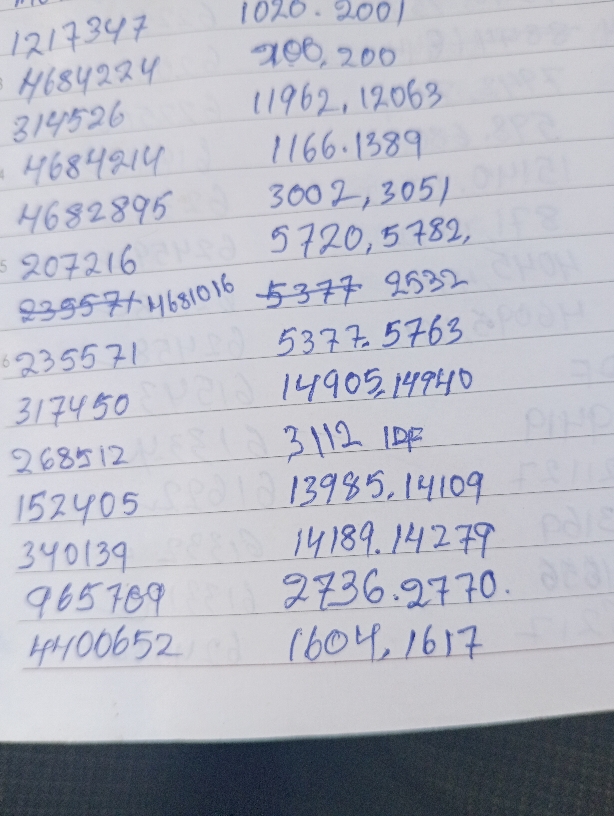 1217347 1020. 2001
4684224 200, 200
314526 11962, 12063
4684214 1166.1389
4682895 3002, 3051
207216 5720, 5782,
235571 4681016 5377 2532
235571 5377. 5763
317450 14905, 14940
268512 3112 IDF
152405 13985, 14109
340139 14189. 14279
965769 2736. 2770.
4400652 1604, 1617